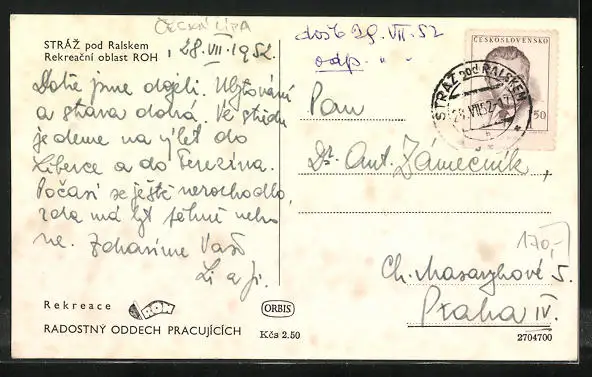 ČESKÁ LÍPA
STRÁŽ pod Ralskem
Rekreační oblast ROH
, 28. VII. 1952.
Dobře jsme dojeli. Ubytování
a strava dobrá. Ve středu
jedeme na výlet do
Liberce a do Terezína.
Počasí se ještě nerozhodlo,
zda má být pěkně nebo
ne. Zdravíme Vás
Li a Ji.
Rekreace
ROH
RADOSTNÝ ODDECH PRACUJÍCÍCH
ORBIS
Kčs 2.50
došlo 29. VII. 52
odp. " "
ČESKOSLOVENSKO
STRÁŽ pod RALSKEM
28. VII. 52 - 17
50
Pan
Dr. Ant. Zámečník,
170,-
Ch. Masarykové 5.
Praha IV.
2704700